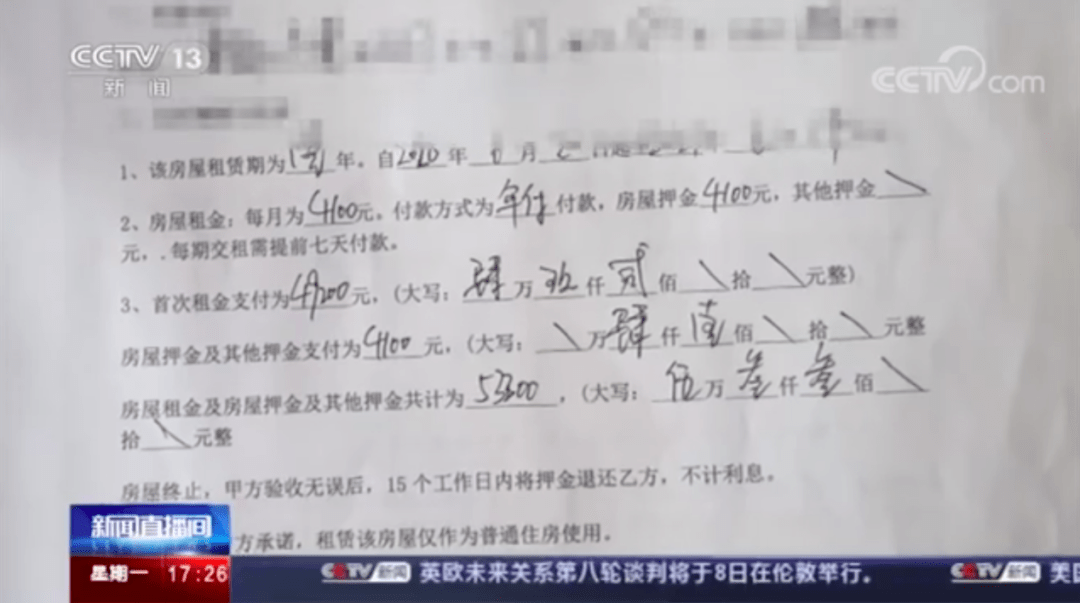 CCTV 13
新闻
CCTV.com
1、该房屋租赁期为 年，自2020年 月
2、房屋租金：每月为4100元，付款方式为年付付款，房屋押金4100元，其他押金\
元，.每期交租需提前七天付款。
3、首次租金支付为49200元，(大写：肆万玖仟贰佰\拾\元整)
房屋押金及其他押金支付为4100元，(大写：\万肆仟壹佰\拾\元整
房屋租金及房屋押金及其他押金共计为53300，(大写：伍万叁仟叁佰\
拾\元整
房屋终止，甲方验收无误后，15个工作日内将押金退还乙方，不计利息。
方承诺，租赁该房屋仅作为普通住房使用。
新闻直播间
星期一 17:26
CCTV新闻 英欧未来关系第八轮谈判将于8日在伦敦举行。 CCTV新闻 美国